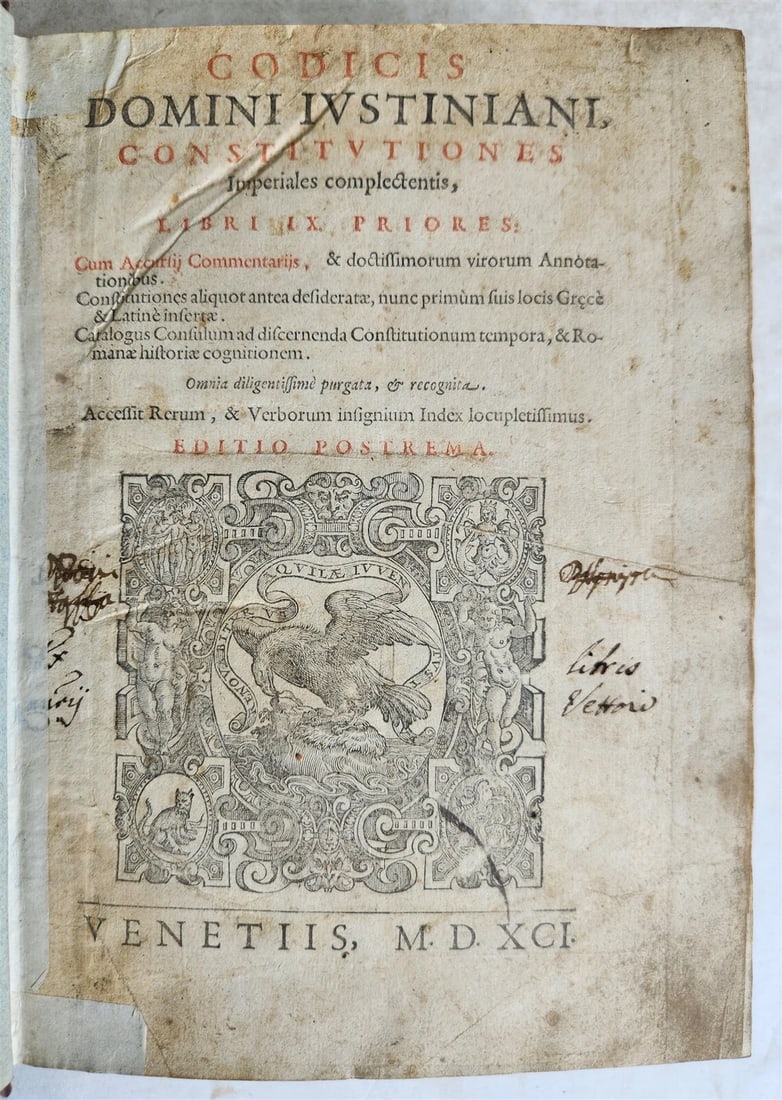 CODICIS
DOMINI IVSTINIANI,
CONSTITVTIONES
Imperiales complectentis,
LIBRI IX. PRIORES:
Cum Accursij Commentarijs, & doctissimorum virorum Annota-
tionibus.
Constitutiones aliquot antea desideratæ, nunc primùm suis locis Gręcè
& Latinè insertæ.
Catalogus Consulum ad discernenda Constitutionum tempora, & Ro-
manæ historiæ cognitionem.
Omnia diligentissimè purgata, & recognita.
Accessit Rerum, & Verborum insignium Index locupletissimus.
EDITIO POSTREMA.
RENOVABITVR VT AQVILÆ IVVENTVS
libris
Vettorij
VENETIIS, M. D. XCI.